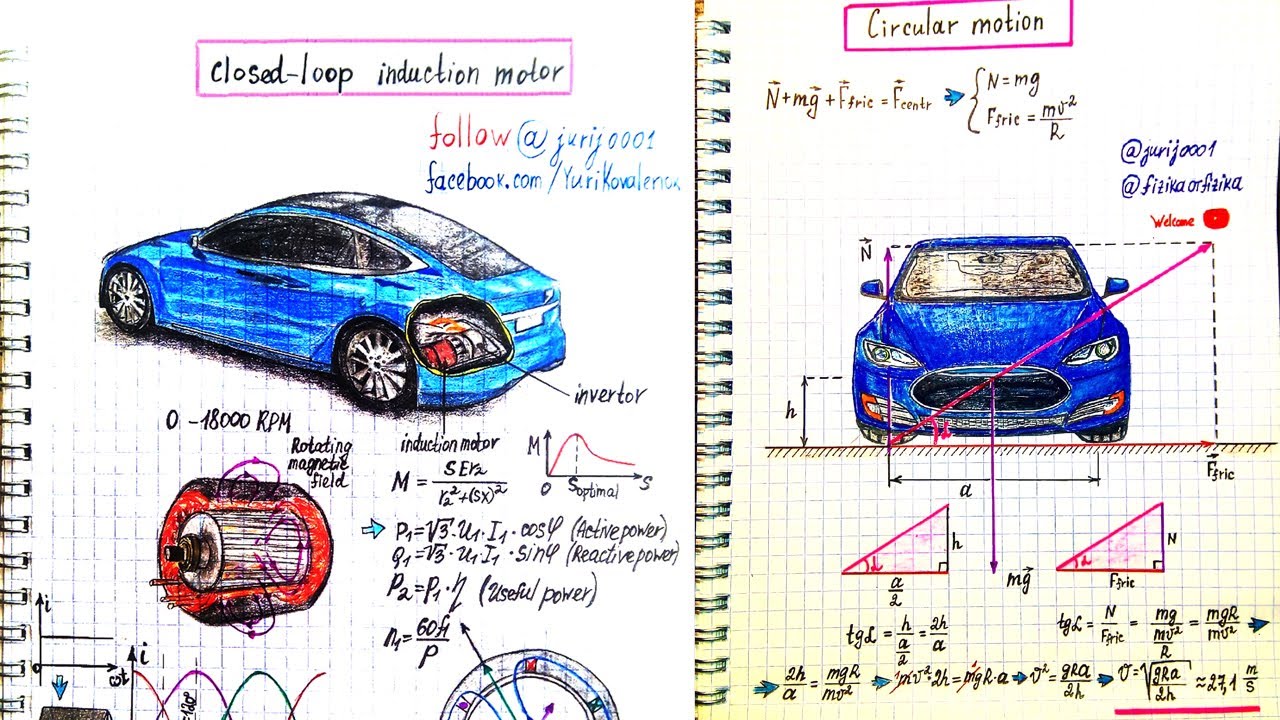 Closed-loop induction motor
follow @jurij0001
facebook.com/YuriKovalenok
invertor
0 -18000 RPM
Rotating
magnetic
field
induction motor
M = SEr₂/(r₂²+(SX)²)
M
0 Soptimal S
P₁=√3·U₁·I₁·cosφ (Active power)
Q₁=√3·U₁·I₁·sinφ (Reactive power)
P₂=P₁·η (Useful power)
n₁=60f₁/P
i
ωt
i
120°
Circular motion
N⃗+mg⃗+F⃗fric=F⃗centr ➔ { N=mg
Ffric=mv²/R
@jurij0001
@fizikaorfizika
Welcome
N⃗
h
α
F⃗fric
a
mg⃗
α h
a/2
α N
Ffric
tgα=h/(a/2)=2h/a
tgα=N/Ffric=mg/(mv²/R)=mgR/mv² ➔
➔ 2h/a=mgR/mv² ➔ mv²·2h=mgR·a ➔ v²=gRa/2h ➔ v=√(gRa/2h)≈27,1 m/s